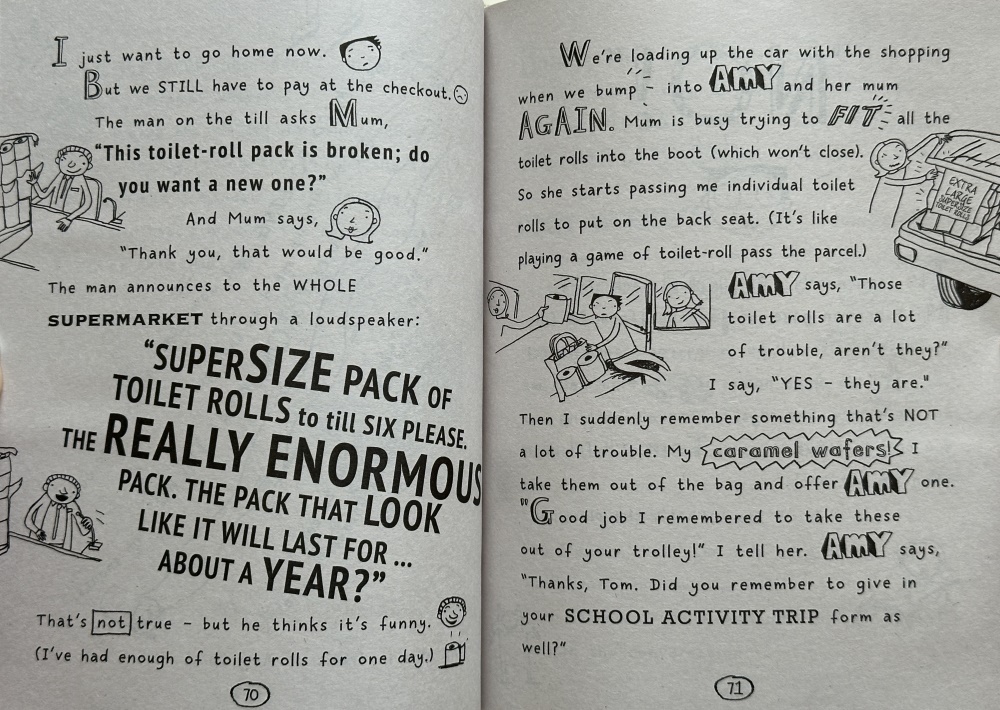 I just want to go home now.
But we STILL have to pay at the checkout.
The man on the till asks Mum,
“This toilet-roll pack is broken; do
you want a new one?”
And Mum says,
“Thank you, that would be good.”
The man announces to the WHOLE
SUPERMARKET through a loudspeaker:
“SUPERSIZE PACK OF
TOILET ROLLS to till SIX PLEASE.
THE REALLY ENORMOUS
PACK. THE PACK THAT LOOK
LIKE IT WILL LAST FOR ...
ABOUT A YEAR?”
That's not true – but he thinks it's funny.
(I've had enough of toilet rolls for one day.)
70
We're loading up the car with the shopping
when we bump into AMY and her mum
AGAIN. Mum is busy trying to FIT all the
toilet rolls into the boot (which won't close).
EXTRA
LARGE
SUPERSIZE
TOILET ROLLS
So she starts passing me individual toilet
rolls to put on the back seat. (It's like
playing a game of toilet-roll pass the parcel.)
AMY says, “Those
toilet rolls are a lot
of trouble, aren't they?”
I say, “YES – they are.”
Then I suddenly remember something that's NOT
a lot of trouble. My caramel wafers! I
take them out of the bag and offer AMY one.
“Good job I remembered to take these
out of your trolley!” I tell her. AMY says,
“Thanks, Tom. Did you remember to give in
your SCHOOL ACTIVITY TRIP form as
well?”
71